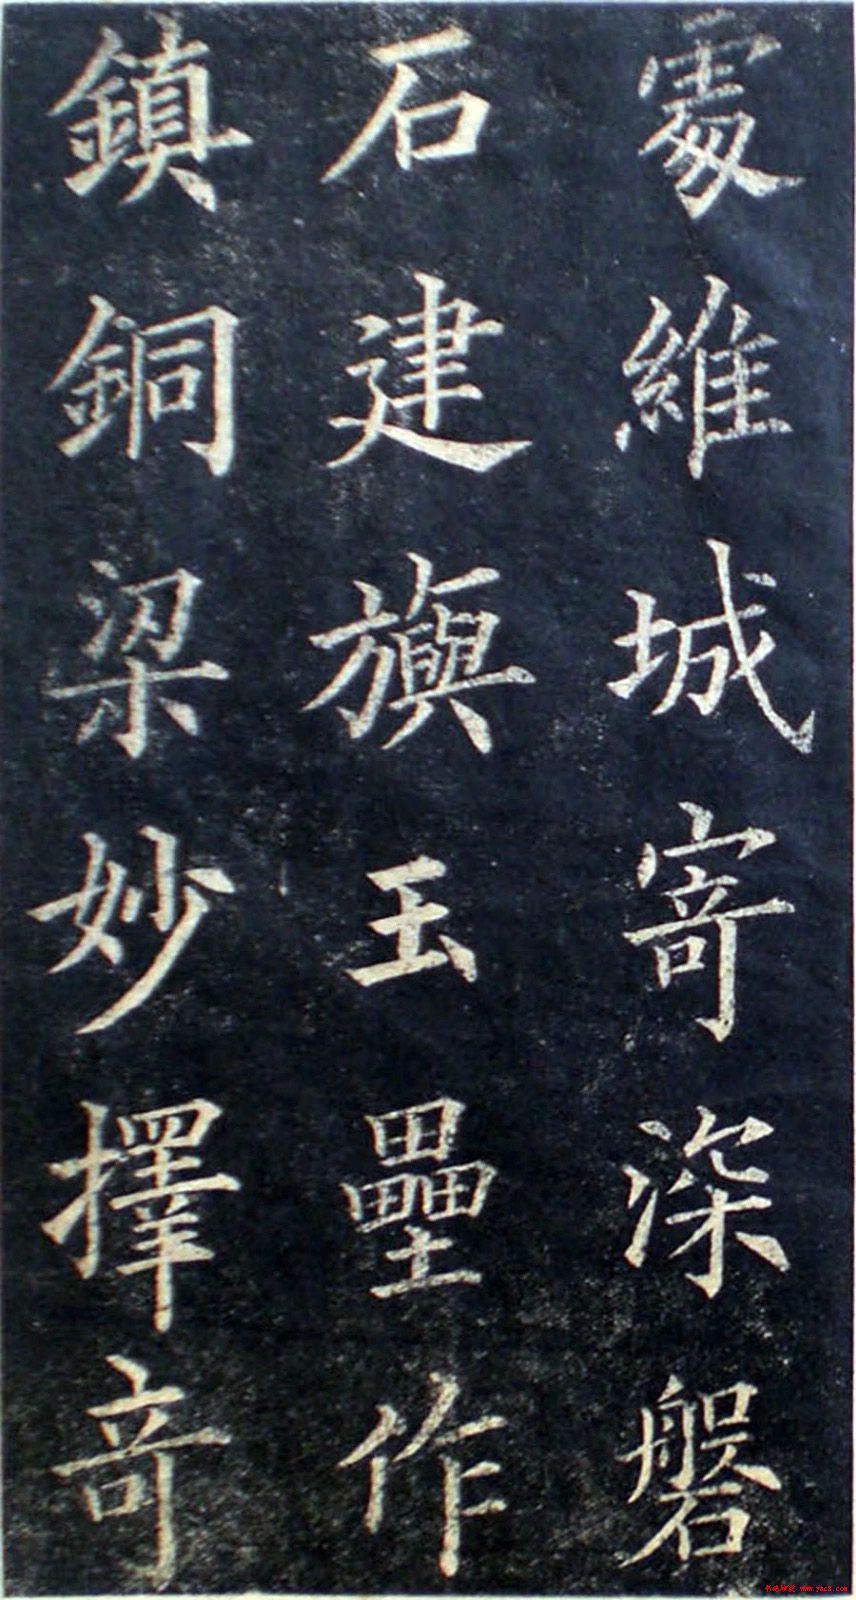 維城寄深磐
石建旟玉壘作
鎮銅梁妙擇奇
书法欣赏 www.yac8.com